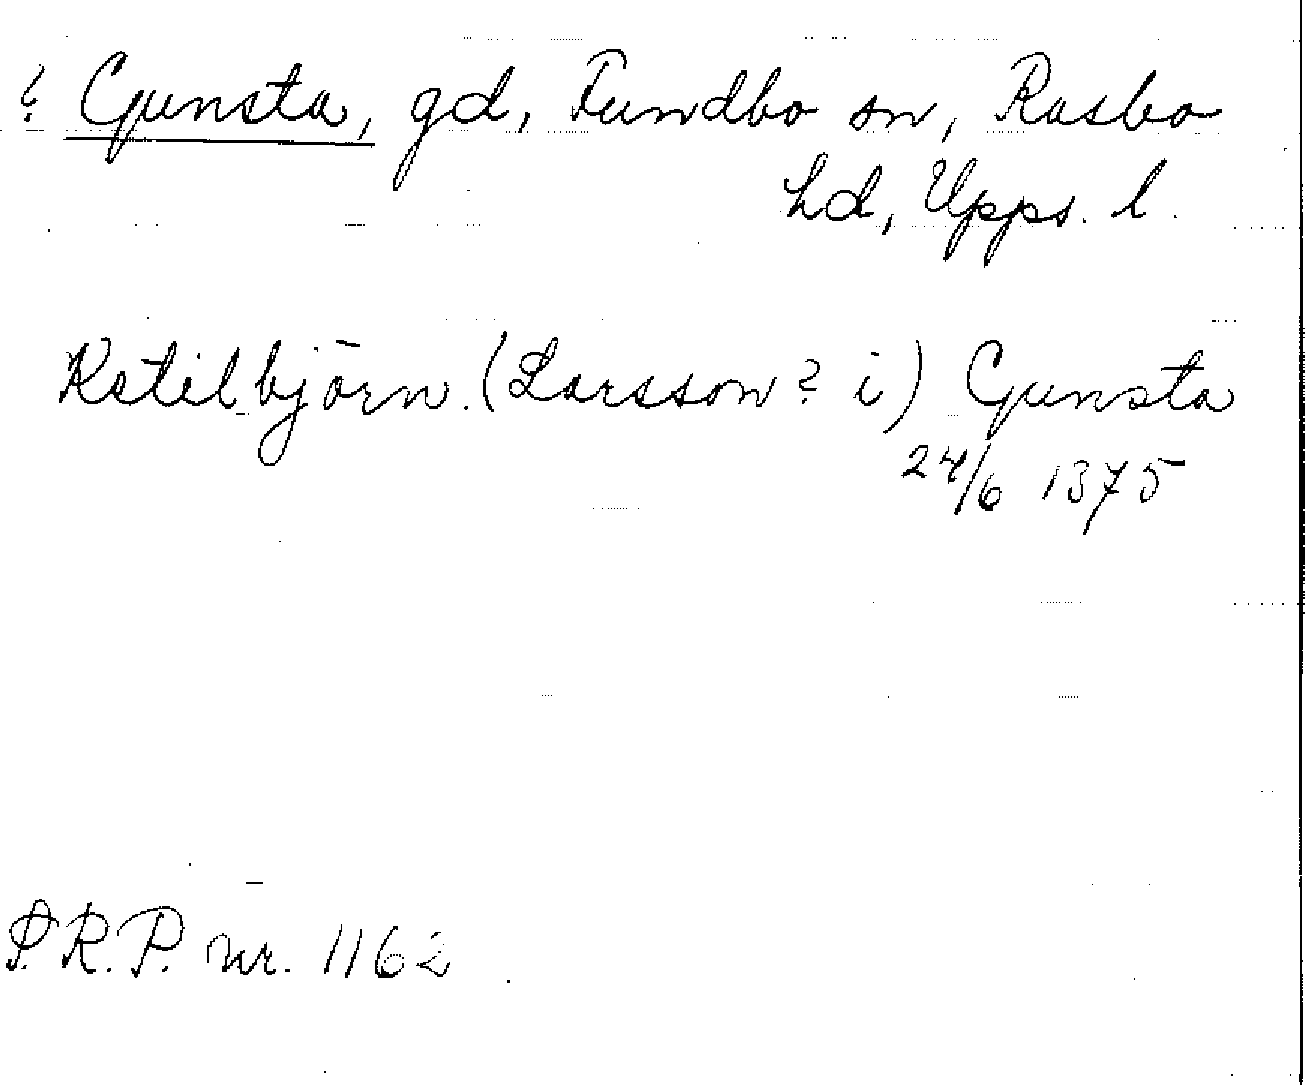 ? Gunsta, gd, Fundbo sn, Rasbo
hd, Upps. l.
Ketilbjörn (Larsson? i) Gunsta
24/6 1375
S.R.P. nr. 1162